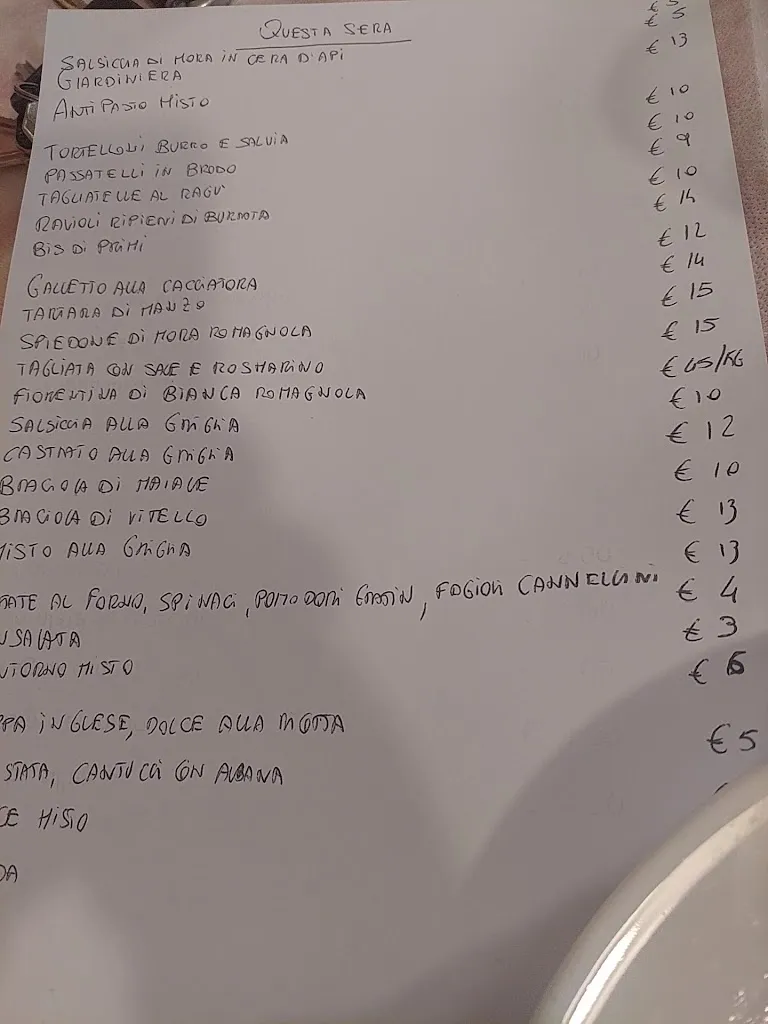 QUESTA SERA
SALSICCIA DI MORA IN CERA D'API € 5
GIARDINIERA € 5
ANTIPASTO MISTO € 13
TORTELLONI BURRO E SALVIA € 10
PASSATELLI IN BRODO € 10
TAGLIATELLE AL RAGU' € 9
RAVIOLI RIPIENI DI BURRATA € 10
BIS DI PRIMI € 14
GALLETTO ALLA CACCIATORA € 12
TARTARA DI MANZO € 14
SPIEDONE DI MORA ROMAGNOLA € 15
TAGLIATA CON SALE E ROSMARINO € 15
FIORENTINA DI BIANCA ROMAGNOLA € 45/KG
SALSICCIA ALLA GRIGLIA € 10
CASTRATO ALLA GRIGLIA € 12
BRACIOLA DI MAIALE € 10
BRACIOLA DI VITELLO € 13
MISTO ALLA GRIGLIA € 13
TATE AL FORNO, SPINACI, POMODORI GRATIN, FAGIOLI CANNELLINI € 4
NSALATA € 3
NTORNO MISTO € 6
PPA INGLESE, DOLCE ALLA MOTTA € 5
STATA, CANTUCCI CON ALBANA
CE MISTO
DA